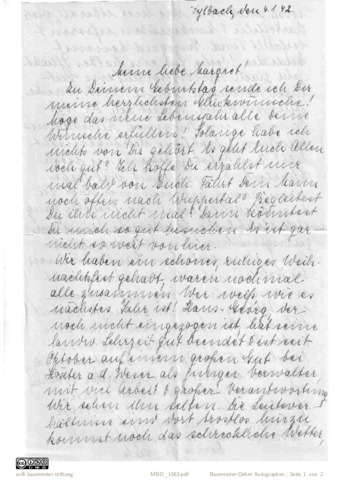 Zylbach, den 4.1.42.
Meine liebe Margret!
Zu Deinem Geburtstag sende ich Dir
meine herzlichsten Glückwünsche!
Möge das neue Lebensjahr alle Deine
Wünsche erfüllen! Solange habe ich
nichts von Dir gehört. Es geht Euch Allen
noch gut? Ich hoffe Du erzählst mir
mal bald von Euch. Fährt Dein Mann
noch öfters nach Wuppertal? Begleitest
Du ihn nicht mal? Dann könntest
Du mich so gut besuchen. Es ist gar
nicht so weit von hier.
Wir haben ein schönes, ruhiges Weih-
nachtsfest gehabt, waren nochmal
alle zusammen. Wer weiß wie es
nächstes Jahr ist! Hans-Georg, der
noch nicht eingezogen ist, hat seine
landw. Lehrzeit gut beendet & ist seit
Oktober auf einem großen Gut bei
Höxter a. d. Weser als junger Verwalter
mit viel Arbeit & großer Verantwortung
Wir sehen ihn selten. Die Leutever-
hältnisse sind dort trostlos hinzu
kommt noch das schreckliche Wetter,
willi baumeister stiftung
MBO_1063.pdf
Baumeister-Oehm Autographen : Seite 1 von 2